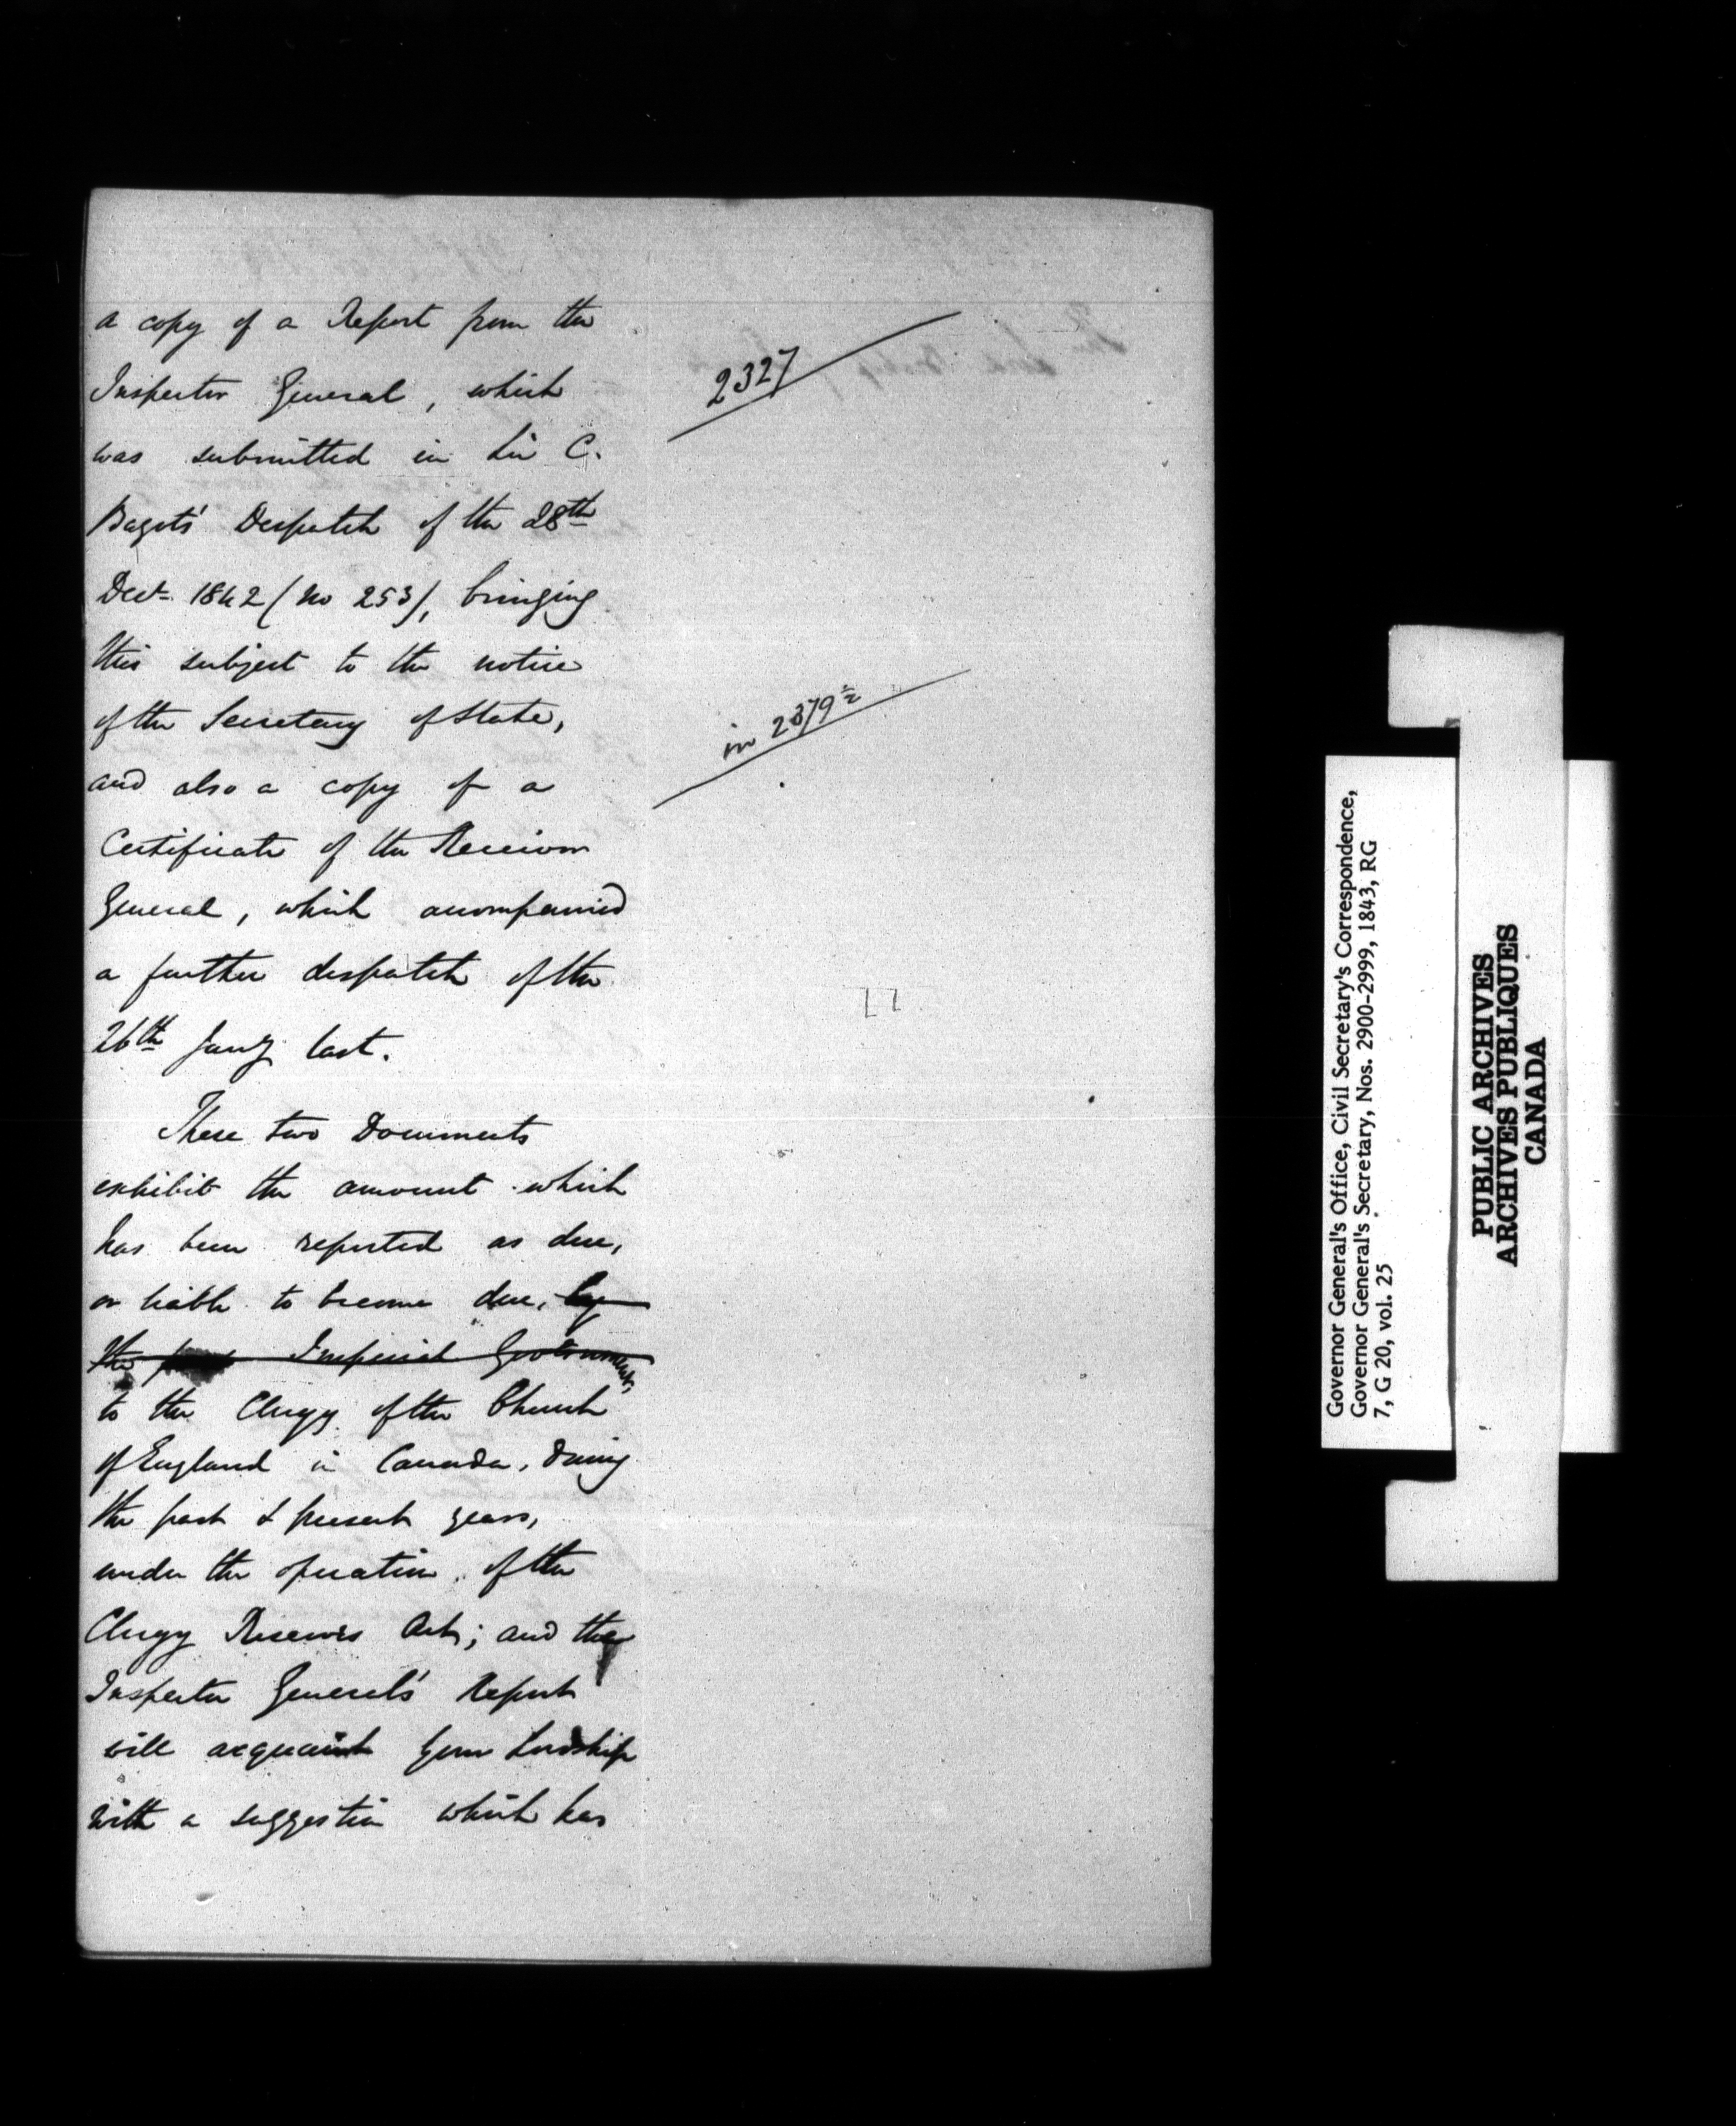 a copy of a Report from the
Inspector General, which
was submitted in Sir C.
Bagot's Despatch of the 28th
Decr 1842 (No 253), bringing
this subject to the notice
of the Secretary of State,
and also a copy of a
Certificate of the Receiver
General, which accompanied
a further despatch of the
26th Jany last.
These two Documents
exhibit the amount which
has been reported as due,
or liable to become due, by
the Imperial Government,
to the Clergy of the Church
of England in Canada, during
the past & present years,
under the operation of the
Clergy Reserves Act; and the
Inspector General's Report
will acquaint Your Lordship
with a suggestion which has
2327
in 2379½
Governor General's Office, Civil Secretary's Correspondence,
Governor General's Secretary, Nos. 2900-2999, 1843, RG
7, G 20, vol. 25
PUBLIC ARCHIVES
ARCHIVES PUBLIQUES
CANADA